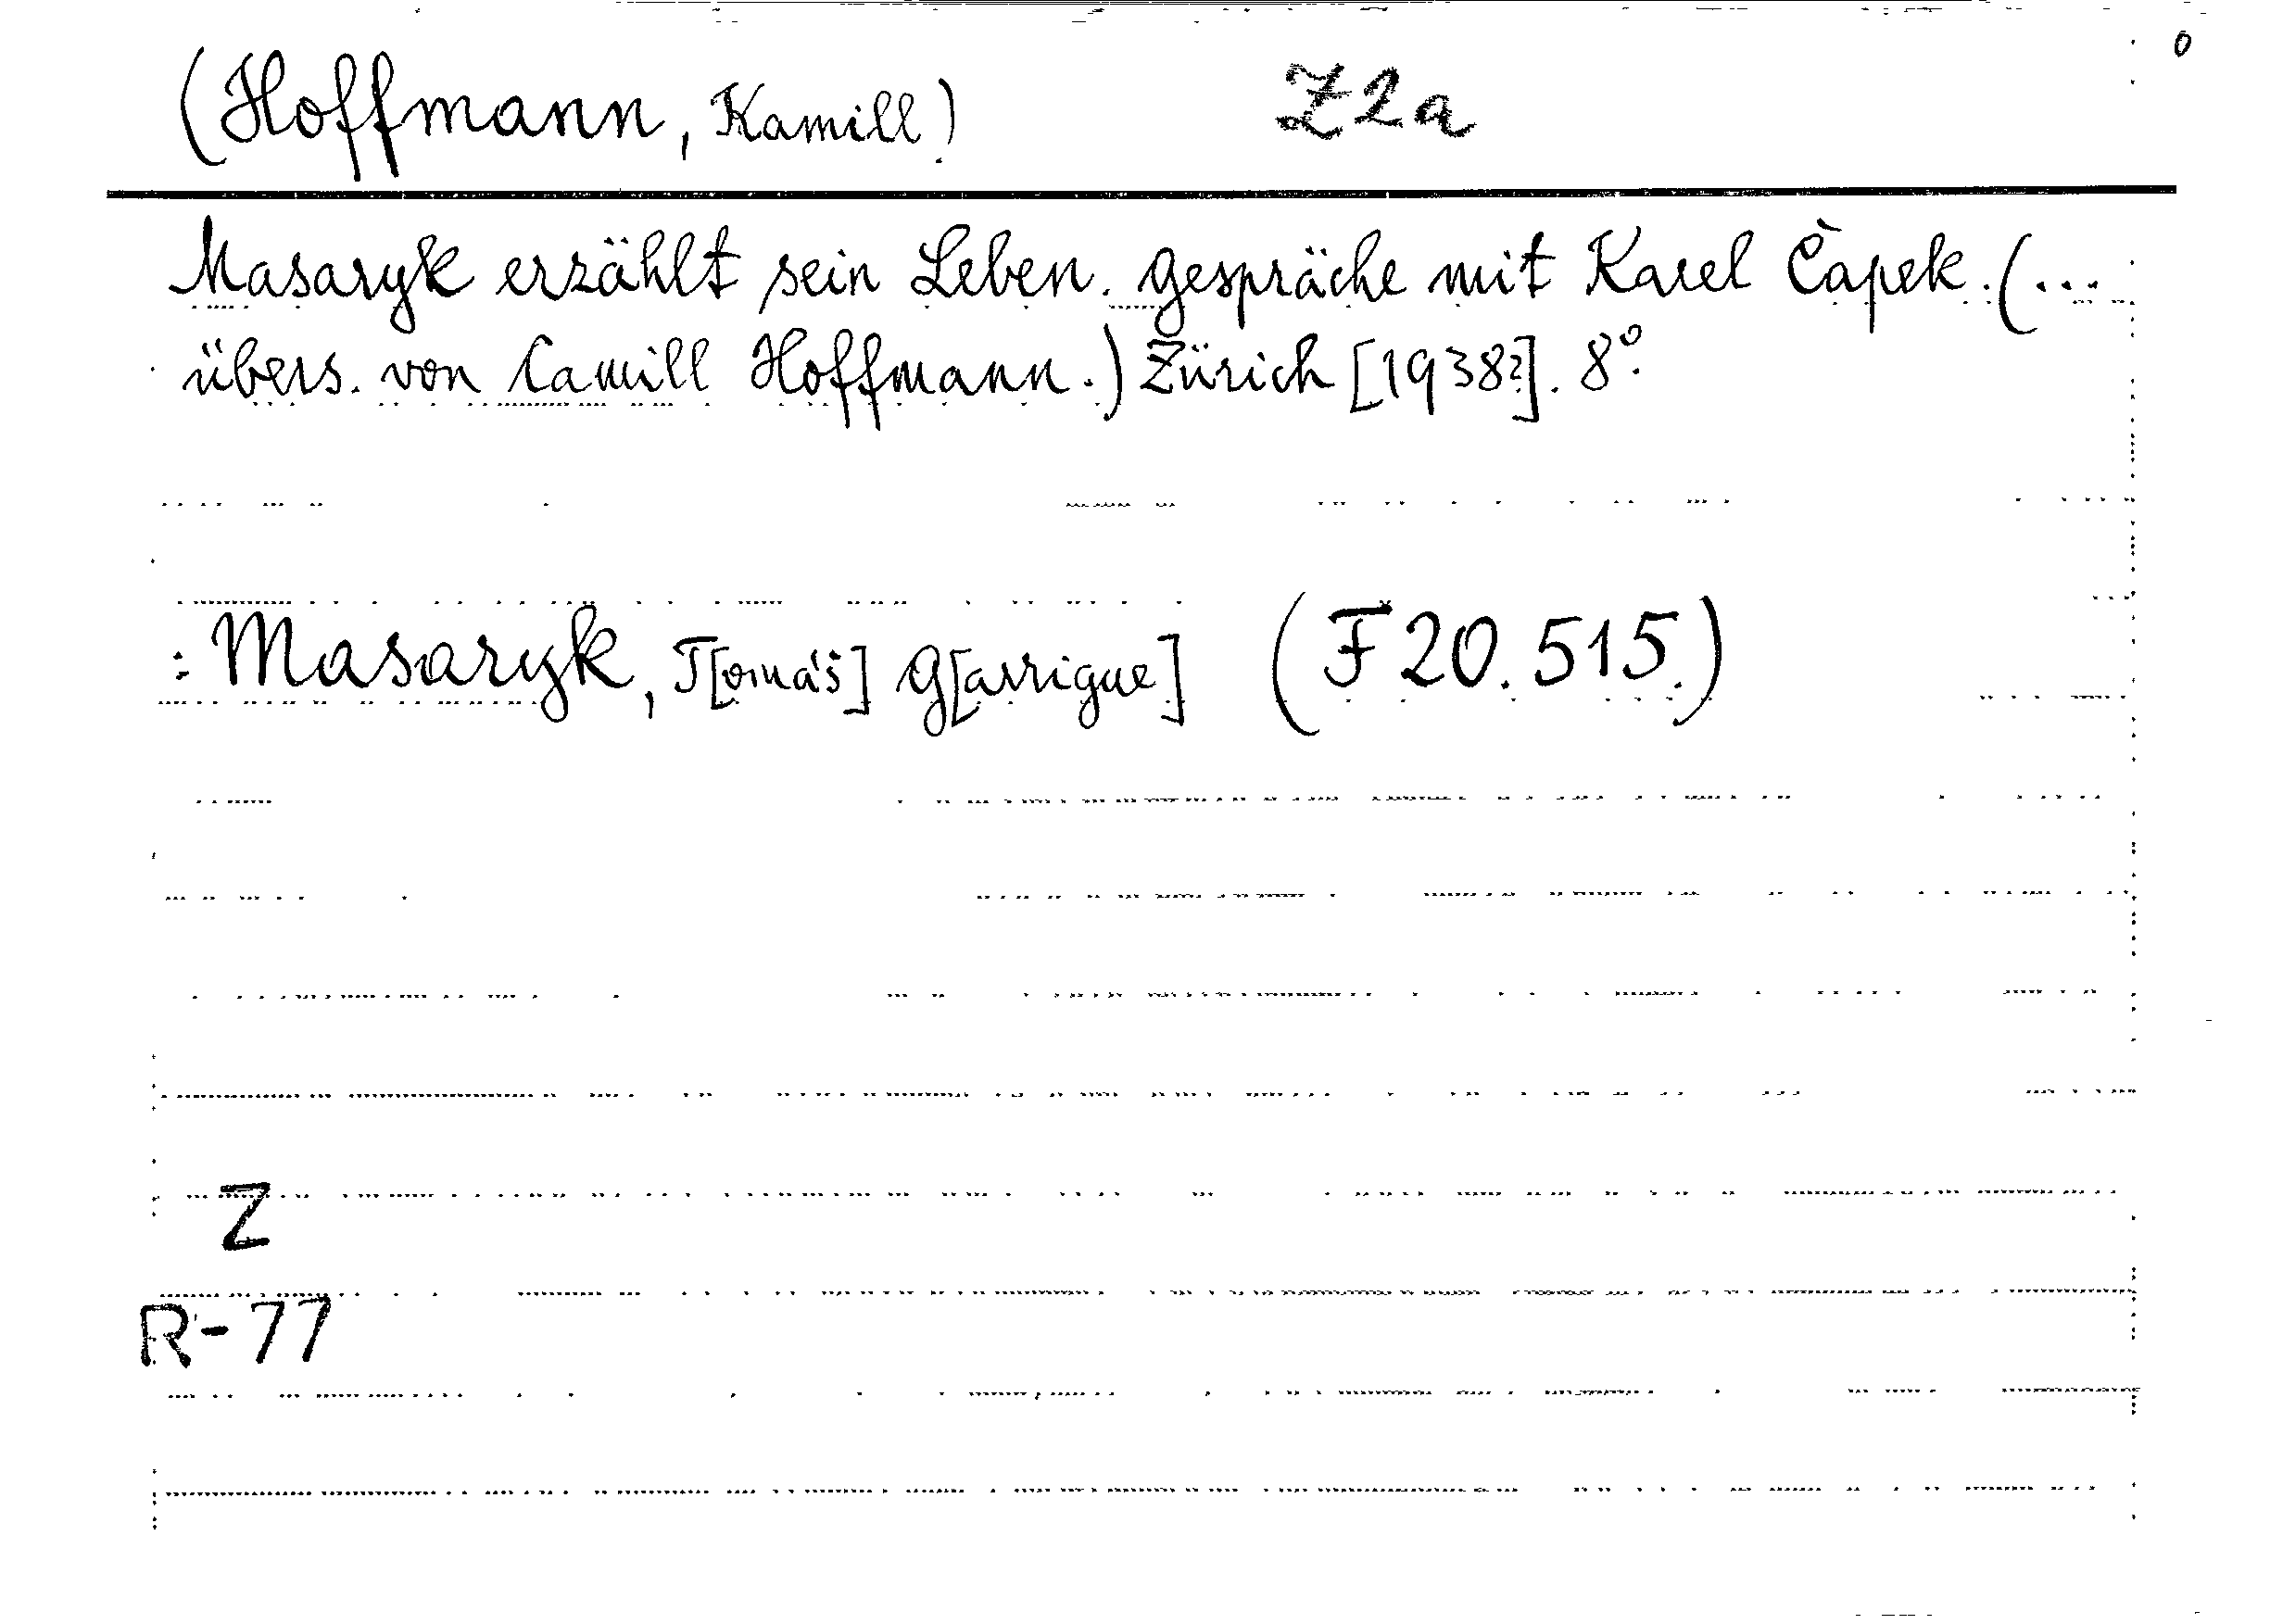 (Hoffmann, Kamill) Z2a 0
Masaryk erzählt sein Leben. Gespräche mit Karel Čapek. (...
übers. von Camill Hoffmann.) Zürich [1938?]. 8°.
: Masaryk, T[omáš] G[arrigue] (F 20.515.)
Z
R-77